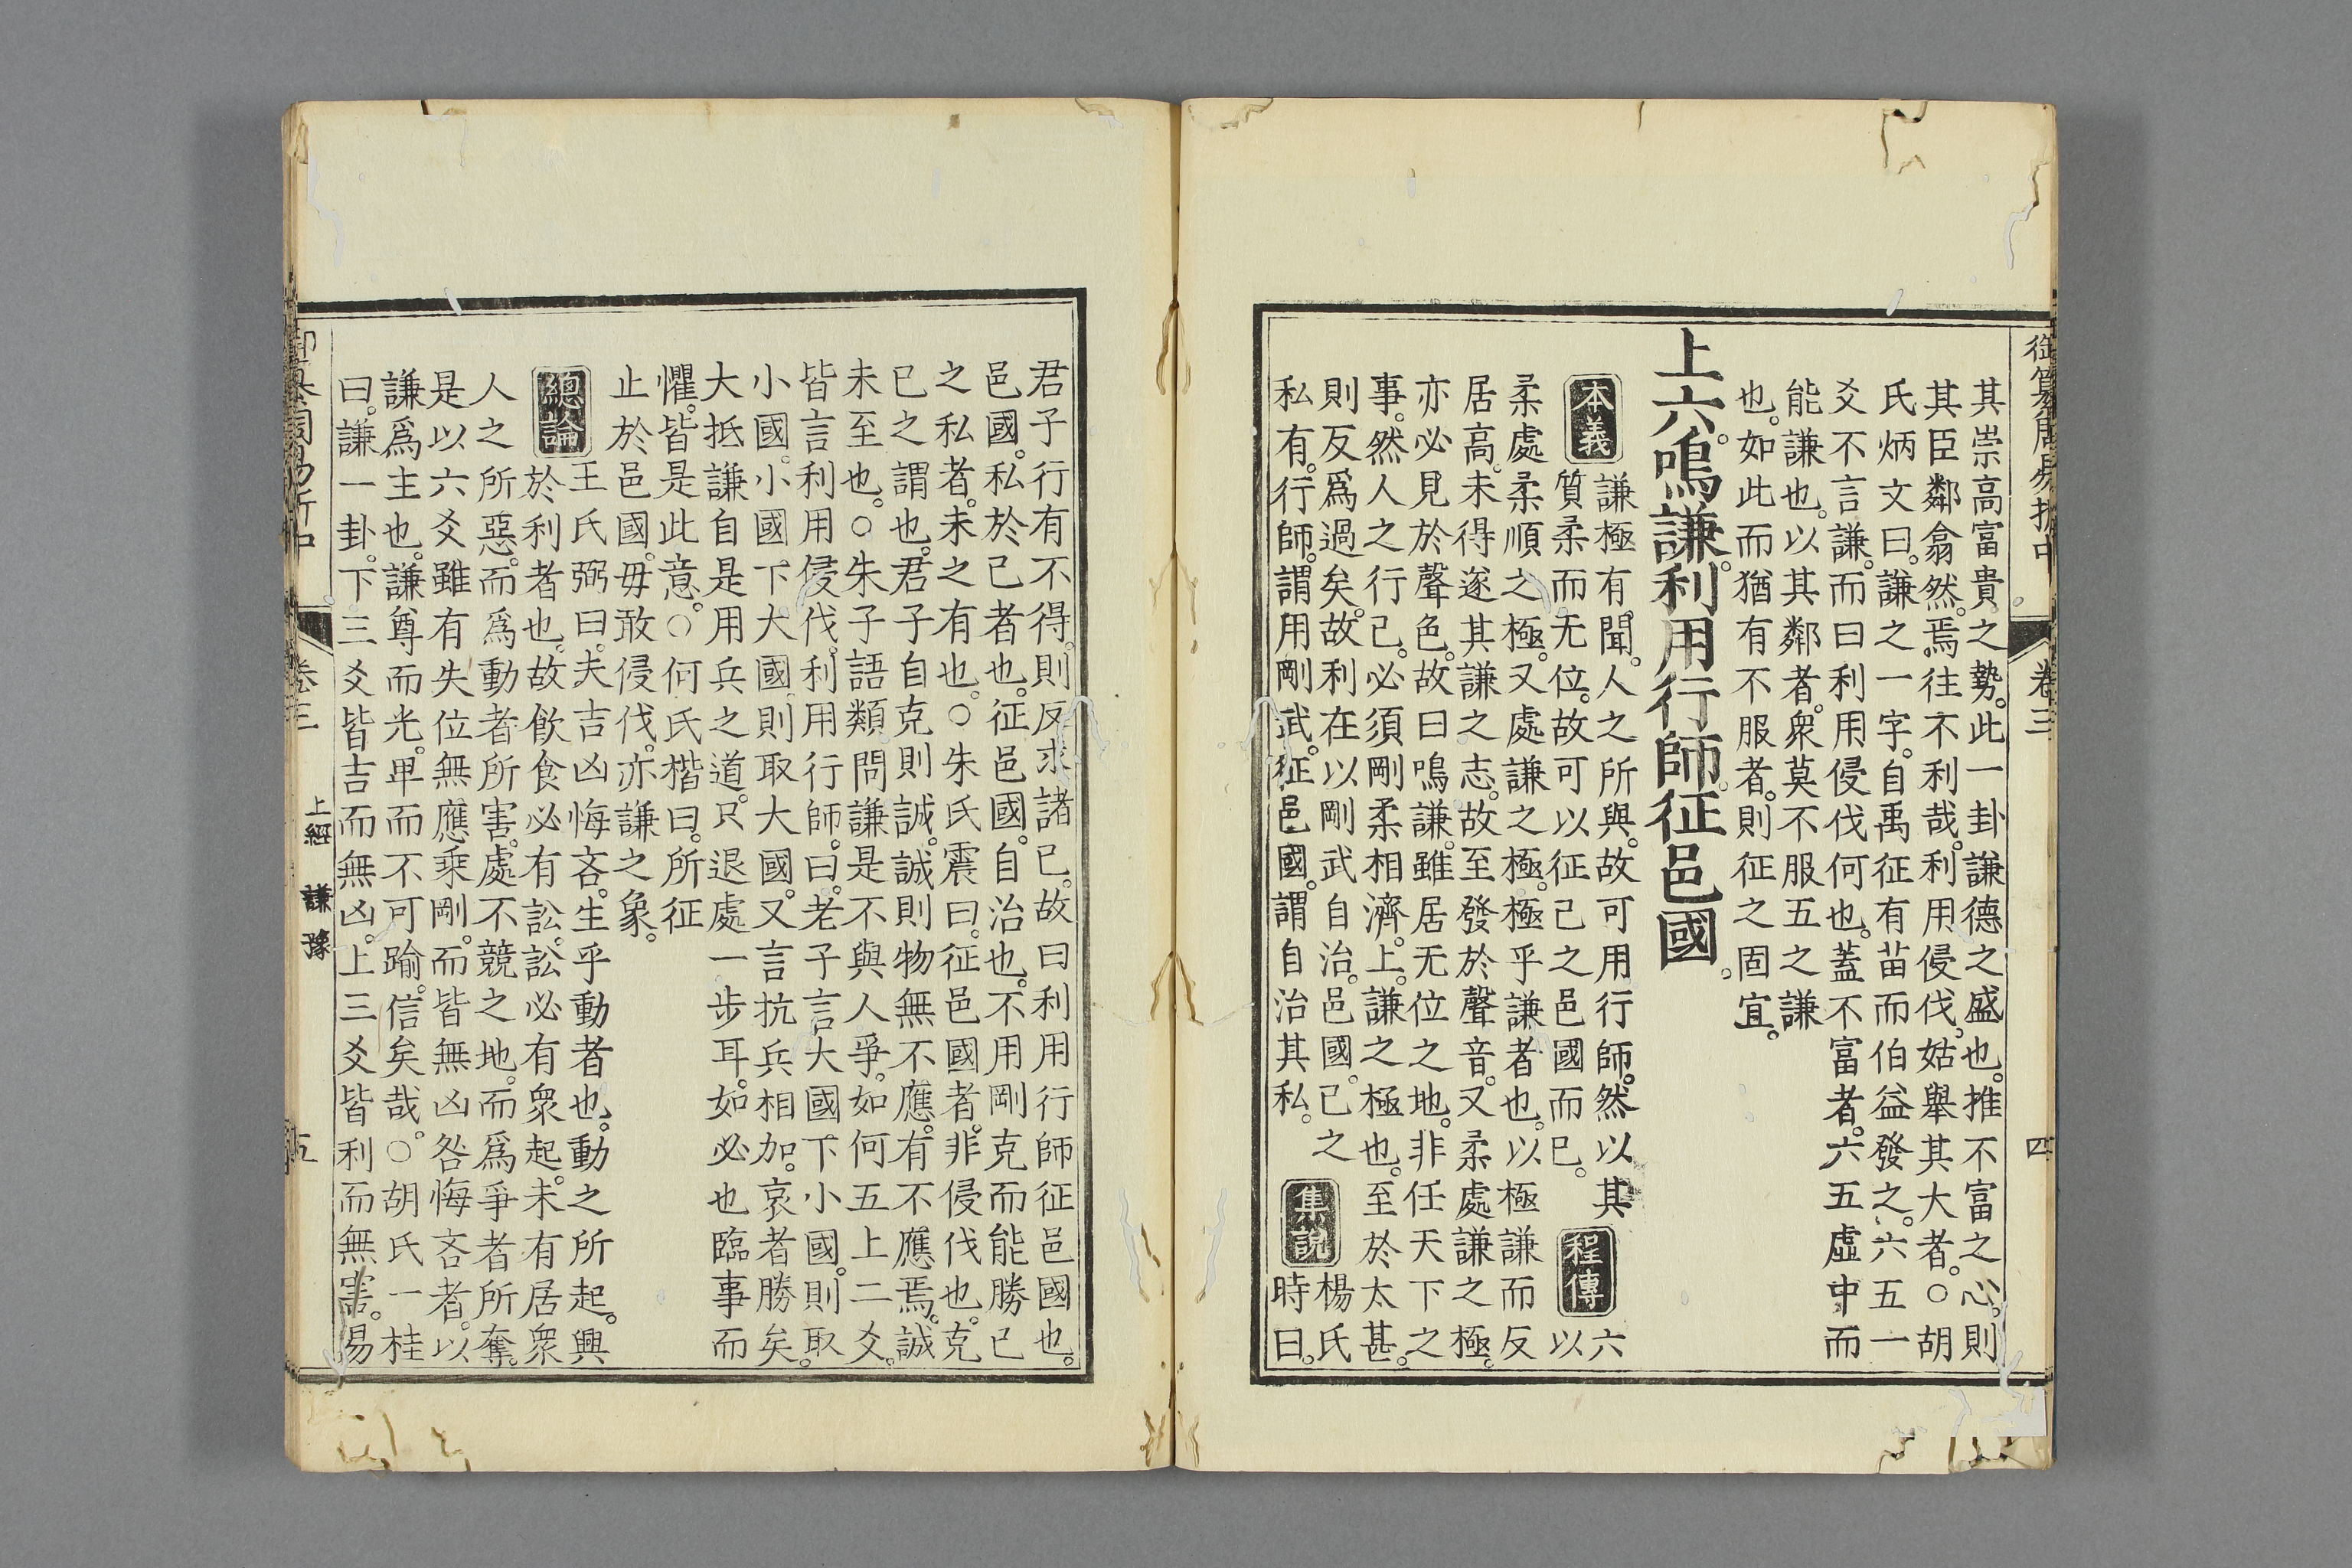 御纂周易折中
卷三
四
其崇高富貴之勢。此一卦謙德之盛也。推不富之心。則
其臣鄰翕然。焉往不利哉。利用侵伐。姑舉其大者。○胡
氏炳文曰。謙之一字。自禹征有苗而伯益發之。六五一
爻不言謙。而曰利用侵伐何也。蓋不富者。六五虛中而
能謙也。以其鄰者。衆莫不服五之謙
也。如此而猶有不服者。則征之固宜。
上六。鳴謙。利用行師。征邑國。
本義
謙極有聞。人之所與。故可用行師。然以其
質柔而无位。故可以征己之邑國而已。
程傳
六
以
柔處柔順之極。又處謙之極。極乎謙者也。以極謙而反
居高。未得遂其謙之志。故至發於聲音。又柔處謙之極。
亦必見於聲色。故曰鳴謙。雖居无位之地。非任天下之
事。然人之行己。必須剛柔相濟。上。謙之極也。至於太甚。
則反爲過矣。故利在以剛武自治。邑國。己之
私有。行師。謂用剛武。征邑國。謂自治其私。
集說
楊氏
時曰。
君子行有不得。則反求諸己。故曰利用行師征邑國也。
邑國。私於己者也。征邑國。自治也。不用剛克而能勝己
之私者。未之有也。○朱氏震曰。征邑國者。非侵伐也。克
己之謂也。君子自克則誠。誠則物無不應。有不應焉。誠
未至也。○朱子語類問謙是不與人爭。如何五上二爻。
皆言利用侵伐。利用行師。曰。老子言大國下小國。則取
小國。小國下大國。則取大國。又言抗兵相加。哀者勝矣。
大抵謙自是用兵之道。只退處一步耳。如必也臨事而
懼。皆是此意。○何氏楷曰。所征
止於邑國。毋敢侵伐。亦謙之象。
總論
王氏弼曰。夫吉凶悔吝。生乎動者也。動之所起。興
於利者也。故飲食必有訟。訟必有衆起。未有居衆
人之所惡。而爲動者所害。處不競之地。而爲爭者所奪。
是以六爻雖有失位無應乘剛。而皆無凶咎悔吝者。以
謙爲主也。謙尊而光。卑而不可踰。信矣哉。○胡氏一桂
曰。謙一卦。下三爻皆吉而無凶。上三爻皆利而無害。易
御纂周易折中
卷三
上經
謙
豫
五